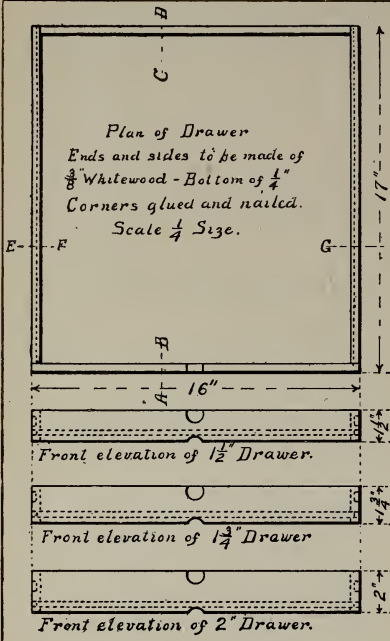 D
C
Plan of Drawer
Ends and sides to be made of
3/8" Whitewood - Bottom of 1/4"
Corners glued and nailed.
Scale 1/4 Size.
E F G
17"
B
A
16"
1 1/2"
Front elevation of 1 1/2" Drawer.
1 3/4"
Front elevation of 1 3/4" Drawer
2"
Front elevation of 2" Drawer.